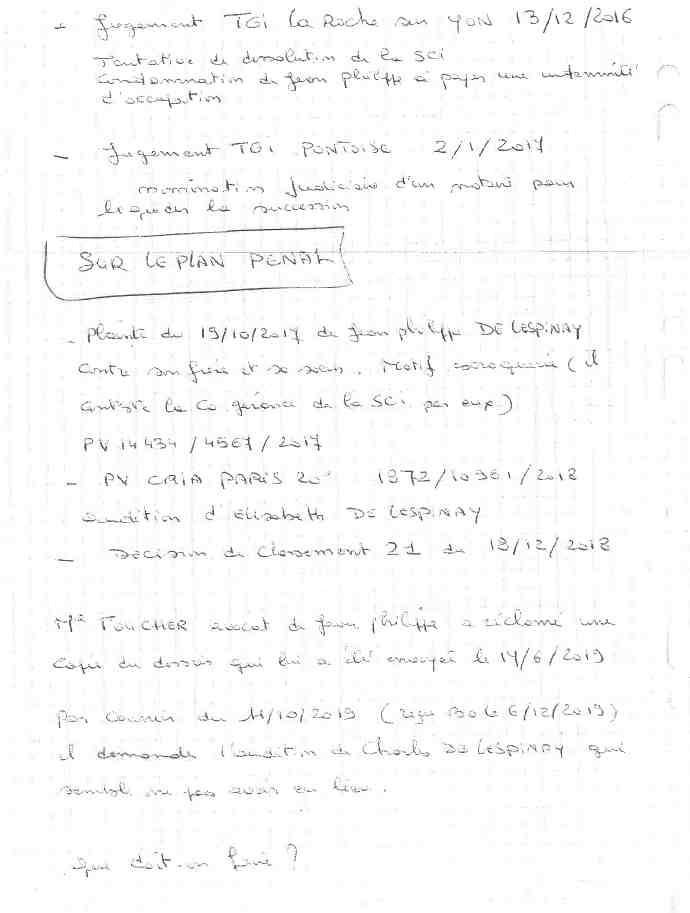 - Jugement TGI La Roche sur YON 13/12/2016
Tentative de dissolution de la SCI
Condamnation de Jean philippe à payer une indemnité
d'occupation
- Jugement TGI PONTOISE 2/1/2017
nomination judiciaire d'un notaire pour
liquider la succession
SUR LE PLAN PENAL
- Plainte du 19/10/2017 de Jean philippe DE LESPINAY
contre son frère et sa soeur. Motif escroquerie (il
conteste la Co gérance de la SCI par eux)
PV 14434 / 4567 / 2017
- PV CRIA PARIS 20° 1872/10961/2018
audition d'Elisabeth DE LESPINAY
- Décision de Classement 21 du 18/12/2018
Me FOUCHER avocat de Jean philippe a réclamé une
copie du dossier qui lui a été envoyée le 14/6/2019
Par courrier du 11/10/2019 (reçu BO le 6/12/2019)
il demande l'audition de Charles DE LESPINAY qui
semble ne pas avoir eu lieu.
Que doit-on faire ?